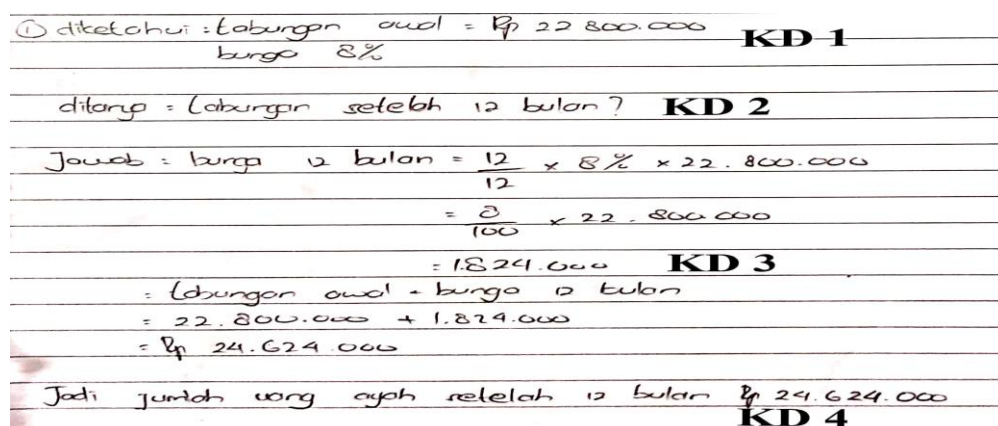 ① diketahui : tabungan awal = Rp 22 800.000 KD 1
bunga 8%
ditanya = tabungan setelah 12 bulan ? KD 2
Jawab = bunga 12 bulan = 12/12 x 8% x 22.800.000
= 8/100 x 22.800.000
= 1.824.000 KD 3
= tabungan awal + bunga 12 bulan
= 22.800.000 + 1.824.000
= Rp 24.624.000
Jadi jumlah uang ayah setelah 12 bulan Rp 24.624.000
KD 4